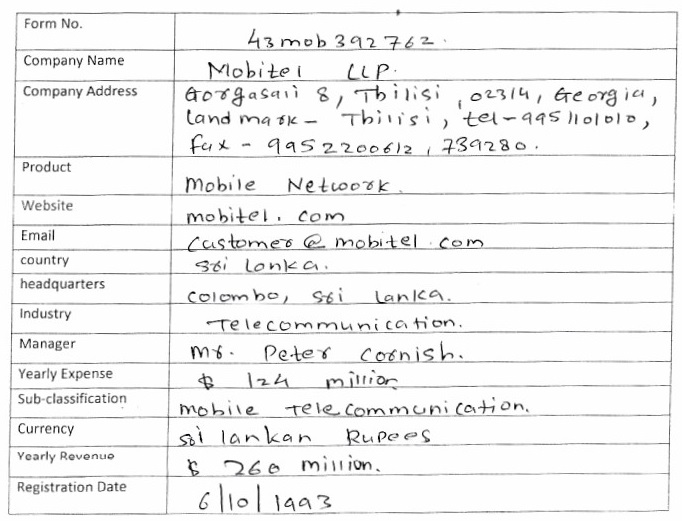 Form No.
43mob392762.
Company Name
Mobitel LLP.
Company Address
Gorgasali 8, Tbilisi, 02314, Georgia,
landmark - Tbilisi, tel-995 1101010,
fax - 9952200612, 739280.
Product
Mobile Network.
Website
mobitel.com
Email
Customer@mobitel.com
country
Sri Lanka.
headquarters
Colombo, Sri Lanka.
Industry
Telecommunication.
Manager
Mr. Peter Cornish.
Yearly Expense
$ 124 million
Sub-classification
Mobile Telecommunication.
Currency
Sri lankan Rupees
Yearly Revenue
$ 260 million.
Registration Date
6/10/1993